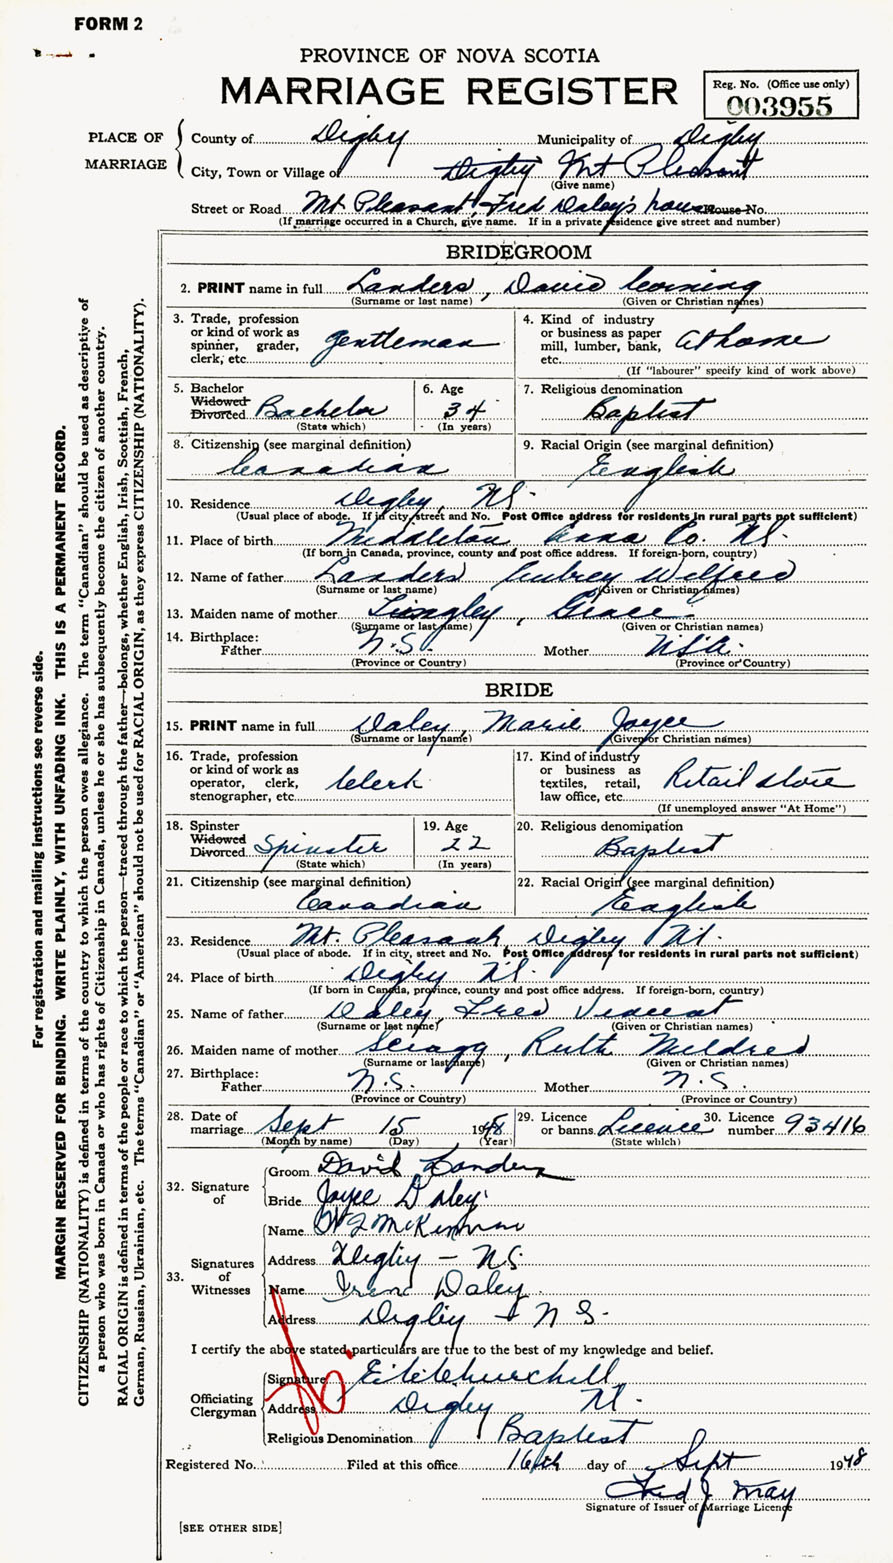 FORM 2
PROVINCE OF NOVA SCOTIA
MARRIAGE REGISTER
Reg. No. (Office use only)
003955
PLACE OF MARRIAGE
County of Digby Municipality of Digby
City, Town or Village of Digby Mt Pleasant
(Give name)
Street or Road Mt Pleasant, Fred Daley's house House No.
(If marriage occurred in a Church, give name. If in a private residence give street and number)
BRIDEGROOM
2. PRINT name in full Landers, David Corning
(Surname or last name) (Given or Christian names)
3. Trade, profession or kind of work as spinner, grader, clerk, etc. gentleman
4. Kind of industry or business as paper mill, lumber, bank, etc. at home
(If "labourer" specify kind of work above)
5. Bachelor Widowed Divorced Bachelor
(State which)
6. Age 34
(In years)
7. Religious denomination
Baptist
8. Citizenship (see marginal definition)
Canadian
9. Racial Origin (see marginal definition)
English
10. Residence Digby, N.S.
(Usual place of abode. If in city, street and No. Post Office address for residents in rural parts not sufficient)
11. Place of birth Middleton Anna Co. N.S.
(If born in Canada, province, county and post office address. If foreign-born, country)
12. Name of father Landers Aubrey Wilfred
(Surname or last name) (Given or Christian names)
13. Maiden name of mother Langley, Grace
(Surname or last name) (Given or Christian names)
14. Birthplace:
Father N.S. Mother
(Province or Country) (Province or Country)
BRIDE
15. PRINT name in full Daley, Marie Joyce
(Surname or last name) (Given or Christian names)
16. Trade, profession or kind of work as operator, clerk, stenographer, etc. Clerk
17. Kind of industry or business as textiles, retail, law office, etc. Retail store
(If unemployed answer "At Home")
18. Spinster Widowed Divorced Spinster
(State which)
19. Age 22
(In years)
20. Religious denomination
Baptist
21. Citizenship (see marginal definition)
Canadian
22. Racial Origin (see marginal definition)
English
23. Residence Mt. Pleasant Digby N.S.
(Usual place of abode. If in city, street and No. Post Office address for residents in rural parts not sufficient)
24. Place of birth Digby N.S.
(If born in Canada, province, county and post office address. If foreign-born, country)
25. Name of father Daley, Fred Vincent
(Surname or last name) (Given or Christian names)
26. Maiden name of mother Scragg, Ruth Mildred
(Surname or last name) (Given or Christian names)
27. Birthplace:
Father N.S. Mother N.S.
(Province or Country) (Province or Country)
28. Date of marriage Sept 15 1948
(Month by name) (Day) (Year)
29. Licence or banns. Licence
(State which)
30. Licence number 93416
32. Signature of
Groom David Landers
Bride Joyce Daley
33. Signatures of Witnesses
Name McKinnon
Address Digby - N.S.
Name Irene Daley
Address Digby - N S.
I certify the above stated particulars are true to the best of my knowledge and belief.
Officiating Clergyman
Signature Churchill
Address Digby N.S.
Religious Denomination Baptist
Registered No. Filed at this office 16th day of Sept 1948
Fred J May
Signature of Issuer of Marriage Licence
[SEE OTHER SIDE]
For registration and mailing instructions see reverse side.
MARGIN RESERVED FOR BINDING. WRITE PLAINLY, WITH UNFADING INK. THIS IS A PERMANENT RECORD.
CITIZENSHIP (NATIONALITY) is defined in terms of the country to which the person owes allegiance. The term "Canadian" should be used as descriptive of
a person who was born in Canada or who has rights of Citizenship in Canada, unless he or she has subsequently become the citizen of another country.
RACIAL ORIGIN is defined in terms of the people or race to which the person—traced through the father—belongs, whether English, Irish, Scottish, French,
German, Russian, Ukrainian, etc. The terms "Canadian" or "American" should not be used for RACIAL ORIGIN, as they express CITIZENSHIP (NATIONALITY).